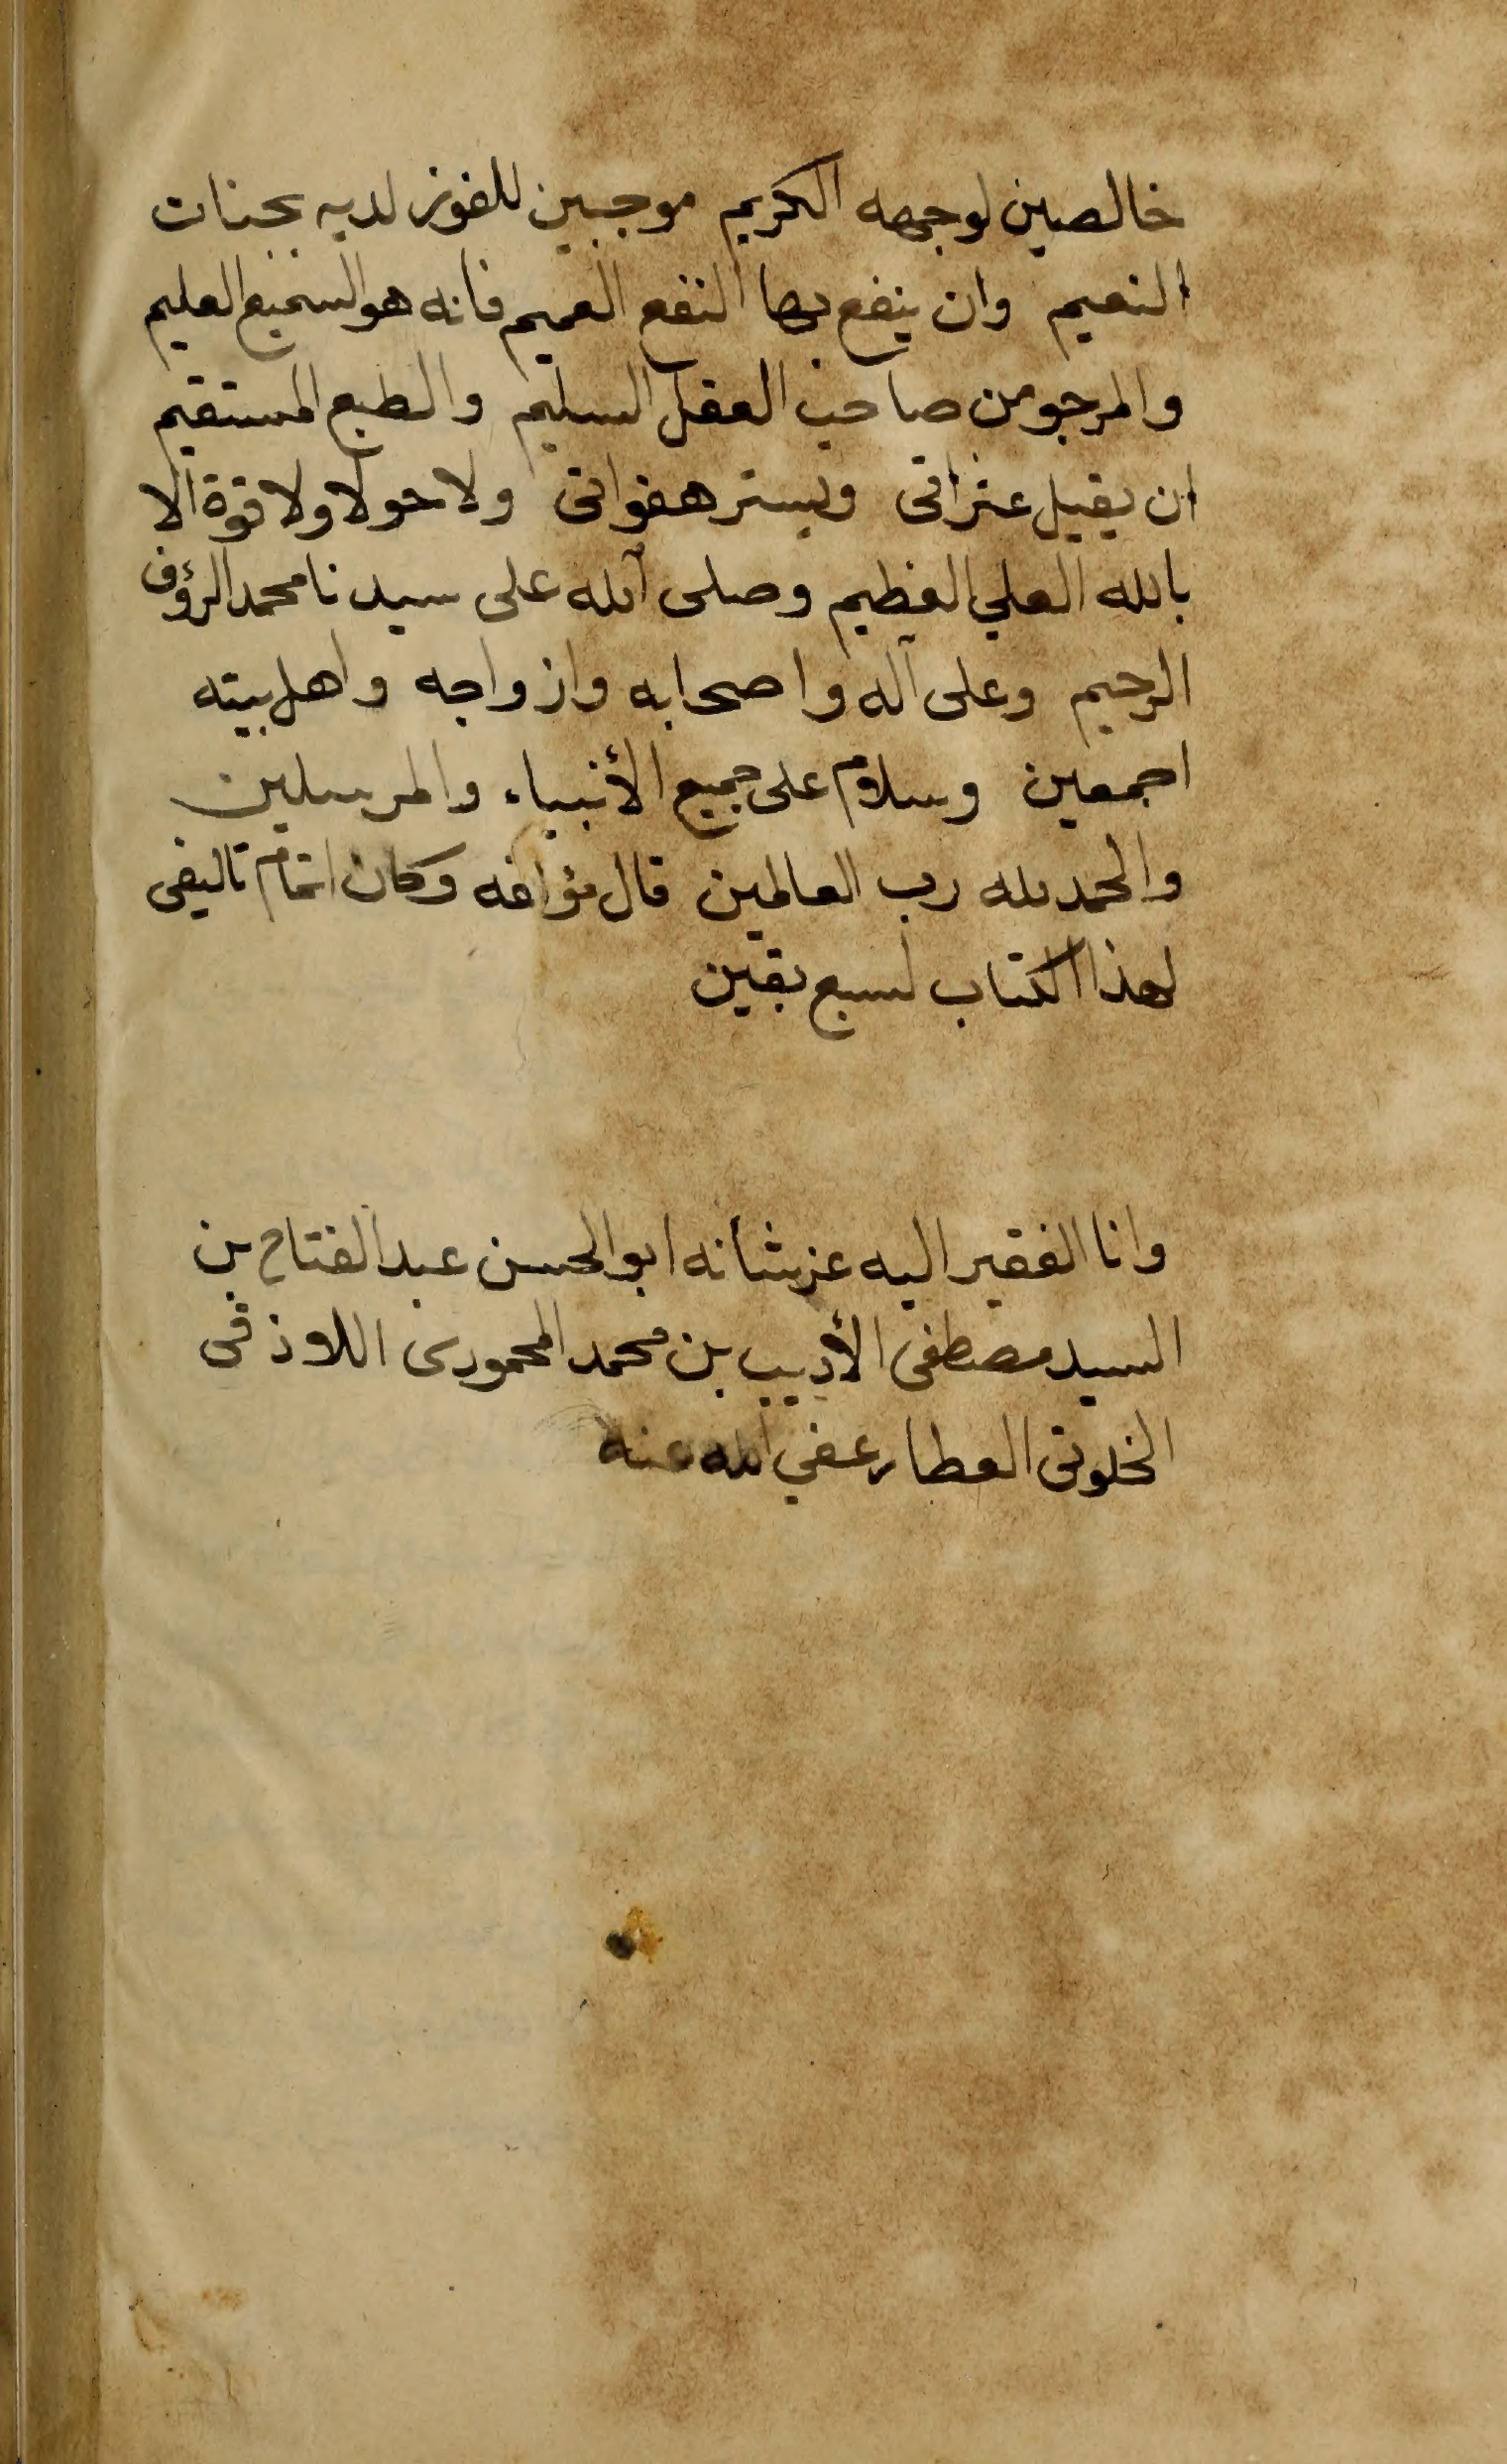 خالصين لوجهه الكريم موجبين للفوز لديه بجنات
النعيم وان ينفع بها النفع العميم فانه هو السميع العليم
والمرجو من صاحب العقل السليم والطبع المستقيم
ان يقيل عثراتى ويستر هفواتى ولا حولا ولا قوة الا
بالله العلي العظيم وصلى الله على سيدنا محمد الرؤف
الرحيم وعلى آله واصحابه وازواجه واهل بيته
اجمعين وسلام على جميع الأنبياء والمرسلين
والحمد لله رب العالمين قال مؤلفه وكان اتمام تاليفى
لهذا الكتاب لسبع بقين
وانا الفقير اليه عز شأنه ابو الحسن عبد الفتاح بن
السيد مصطفى الأديب بن محمد المحمودى اللاذقى
الخلوتى العطار عفي الله عنه